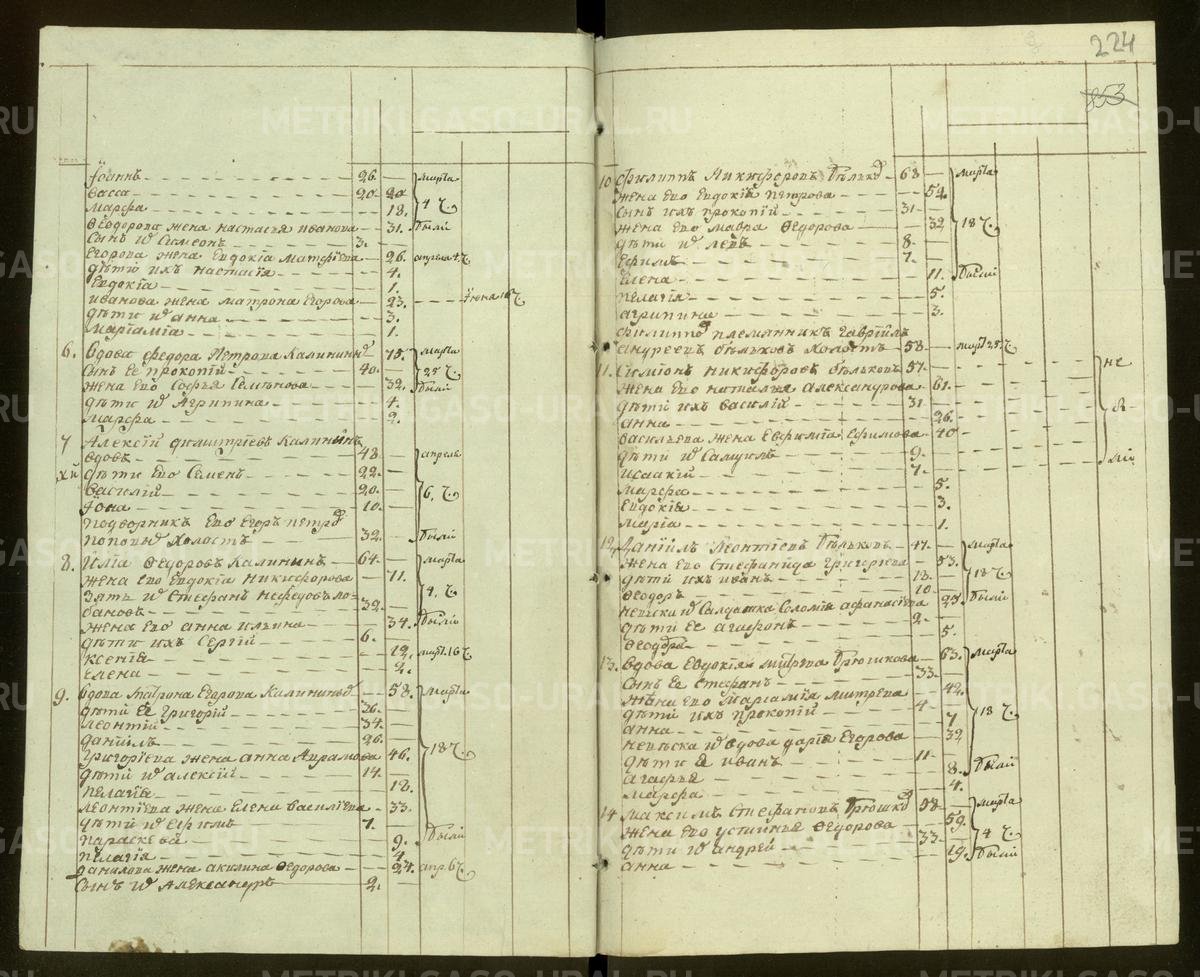 224
853
Іоаннъ 26.
Васса 20. 20
Марѳа 18.
марта 4 ч. были
Ѳеодорова жена настасья иванова 31.
Сынъ Симеонъ 3.
Егорова жена Евдокіа матфіева 26. апреля 4. ч
дѣти ихъ настасіа 4.
Евдокіа 1.
иванова жена матрона Егорова 23.
дѣти анна 3.
маріамїа 1.
6. Вдова федора Петрова Калинин 75. марта 25 ч. были
Сынъ Ее прокопій 40.
жена Его Софья Семѣнова 32.
дѣти Агрипина 4.
марѳа 2.
7 Алексїй Димитріевъ Калининъ
вдовъ 48. апреля 6. ч. были
дѣти Его Семенъ 22.
Василій 20.
Іона 10.
подворникъ Его Егоръ петро
поповъ Холостъ 32.
8. Илїа Ѳедоровъ Калининъ 64. марта 4. ч. были
жена Его Евдокіа никифорова 71.
Зять Стефанъ нефедовъ ло-
бановъ 32.
жена Его анна ильина 34.
дѣти ихъ Сергій 6.
ксеніа 12. март. 16 ч
Елена 2.
9. Вдова матрона Егорова Калинины 58. марта 18 ч. были
дѣти Ее Григорій 36.
леонтій 34.
данїилъ 26.
григоріева жена анна Аврамова 46.
дѣти алексій 14.
пелагіа 18.
леонтіева жена Елена василіева 33.
дѣти Ефимъ 7.
параскева 9.
пелагіа 4.
данилова жена акилина Ѳедорова 24. апр. 6 ч
Сынъ Александръ 2.
10 Филиппъ Никифоровъ Бѣлько 63 марта 18 ч. были
жена Его Евдокїа Петрова 54.
Сынъ ихъ прокопій 31
жена Его мавра Ѳедорова 32
дѣти левъ 8.
Ефимъ 7.
Елена 11.
пелагіа 5.
агрипина 3.
филиппо племянникъ гавріилъ
андреевъ бѣльковъ Холостъ 58 март 25. ч
11. Симіонъ Никифоровъ бѣльковъ 57. не
жена Его наталья Александрова 61.
дѣти ихъ василій 31
анна 26.
васильева жена Евфимїа Ефимова 40
дѣти Самуилъ 9.
Исаакій 7.
марѳа 5.
Евдокіа 3.
маріа 1.
12 Данїилъ Леонтіевъ Бѣльковъ 47. марта 18 ч. были
жена Его Стефанида Григоріева 53.
дѣти ихъ иванъ 18.
Ѳеодоръ 10
невѣстки Салдатка Соломїа афанасіева
дѣти Ее агафонъ 2.
Ѳеодора 5.
13. Вдова Евдокїа митрева Грюшкова 63. марта 18 ч. были
Сынъ Ее Стефанъ 33.
жена Его маріамїа митрева 42.
дѣти ихъ прокопій 4
анна 7
невѣска вдова дарїа Егорова 32
дѣти Ея иванъ 11
агафья 8.
марѳа 4.
14 максимъ Стефановъ Грюшко 58. марта 4 ч. были
жена Его устинья Ѳедорова 59.
дѣти андрей 33.
анна 19.